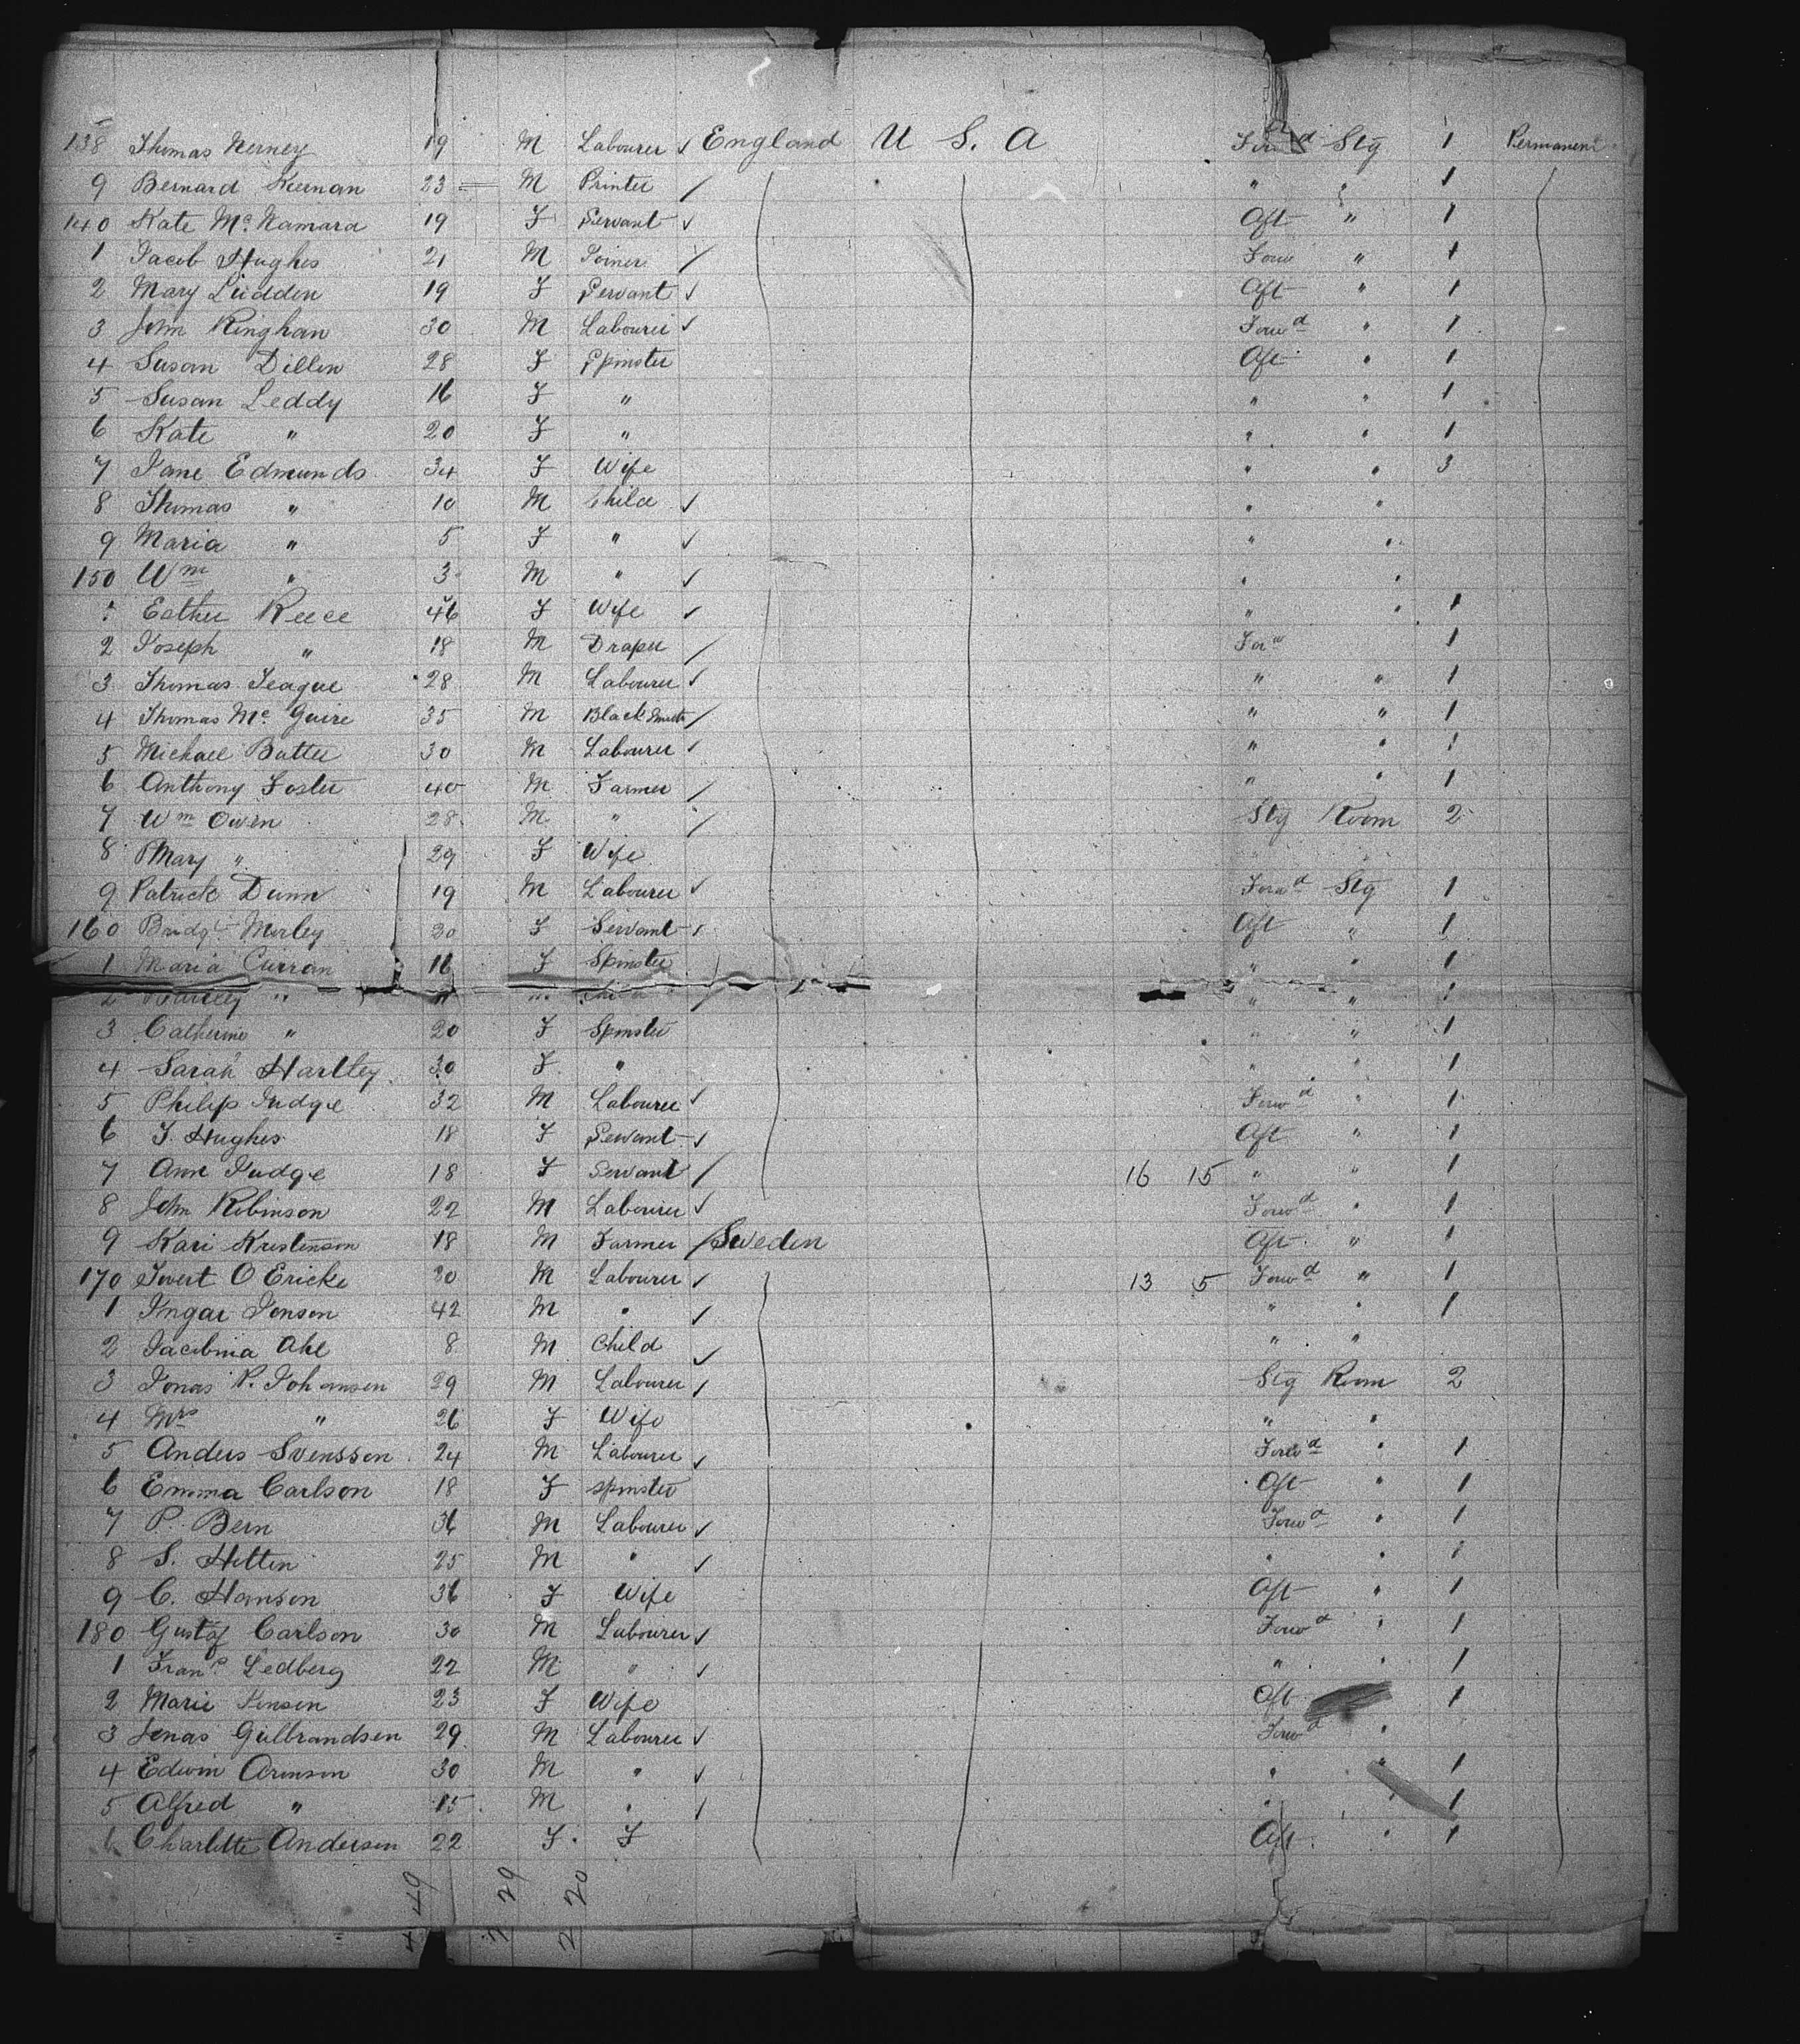 138 Thomas Nerney 19 M Labourer England U S. A Forwd Stg 1 Permanent
9 Bernard Kiernan 23 M Printer " " 1
140 Kate Mc Namara 19 F Servant Aft " 1
1 Jacob Hughes 21 M Joiner Forw " 1
2 Mary Ludden 19 F Servant Aft " 1
3 John Ringhan 30 M Labourer Forwd " 1
4 Susan Dillon 28 F Spinster Aft " 1
5 Susan Leddy 16 F " " " 1
6 Kate " 20 F " " " 1
7 Jane Edmunds 34 F Wife " " 3
8 Thomas " 10 M Child " "
9 Maria " 5 F " " "
150 Wm " 3 M " " "
Esther Reece 46 F Wife " " 1
2 Joseph " 18 M Draper Forw 1
3 Thomas Teague 28 M Labourer " " 1
4 Thomas Mc Guire 35 M Black Smith " " 1
5 Michael Butter 30 M Labourer " " 1
6 Anthony Foster 40 M Farmer " " 1
7 Wm Owen 28 M " Stg Room 2
8 Mary " 29 F Wife
9 Patrick Dunn 19 M Labourer Forwd Stg 1
160 Bridgt Morley 20 F Servant Aft " 1
1 Maria Curran 16 F Spinster " " 1
2 " " " 1
3 Catherine " 20 F Spinster " " 1
4 Sarah Hartley 30 F " " " 1
5 Philip Judge 32 M Labourer Forwd " 1
6 J. Hughes 18 F Servant Aft " 1
7 Ann Judge 18 F Servant 16 15 " " 1
8 John Robinson 22 M Labourer Forwd " 1
9 Kari Kristenson 18 M Farmer Sweden Aft " 1
170 Sivert O Ericke 30 M Labourer 13 5 Forwd " 1
1 Ingar Jonson 42 M " " " 1
2 Jacobina Ahl 8 M Child " "
3 Jonas P. Johansen 29 M Labourer Stg Room 2
4 Mrs " 26 F Wife " "
5 Anders Svensson 24 M Labourer Forwd " 1
6 Emma Carlson 18 F Spinster Aft " 1
7 P. Bern 36 M Labourer Forwd " 1
8 S. Hetten 25 M " " " 1
9 C. Hanson 36 F Wife Aft " 1
180 Gustof Carlson 30 M Labourer Forwd " 1
1 Frans Ledberg 22 M " " " 1
2 Marie Jensen 23 F Wife Aft 1
3 Jonas Gulbrandsen 29 M Labourer Forwd "
4 Edwin Aronson 30 M " " " 1
5 Alfred " 15 M " " " 1
6 Charlotte Anderson 22 F F Aft " 1
49 29 20